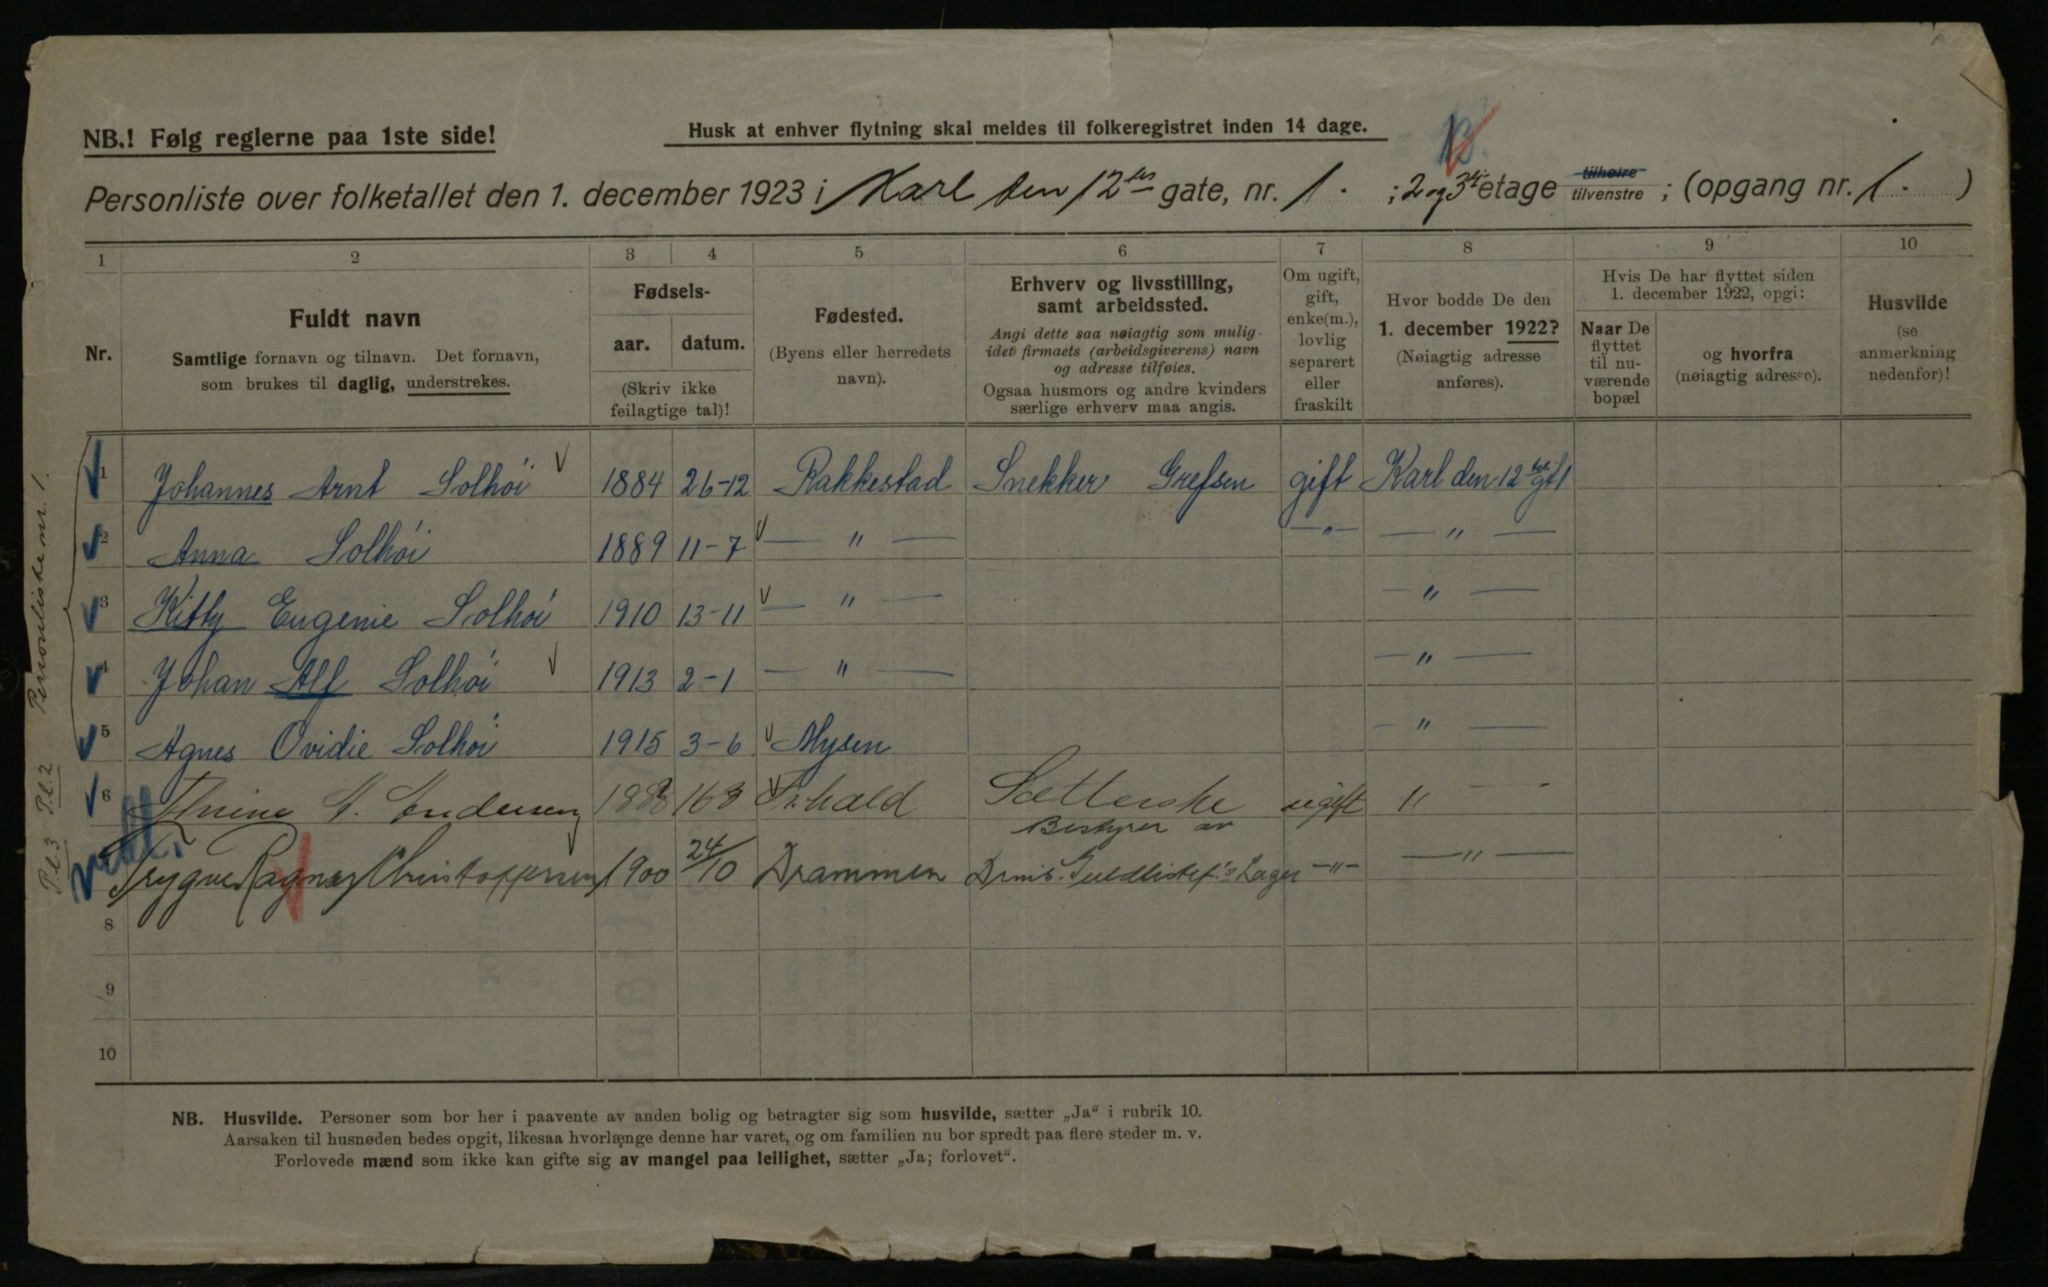 NB.! Følg reglerne paa 1ste side!
Husk at enhver flytning skal meldes til folkeregistret inden 14 dage.
Personliste over folketallet den 1. december 1923 i Karl den 12tes gate, nr. 1. ; 2 og 3die etage tilhøire tilvenstre ; (opgang nr. 1. )
1 2 3 4 5 6 7 8 9 10
Nr.
Fuldt navn
Samtlige fornavn og tilnavn. Det fornavn,
som brukes til daglig, understrekes.
Fødsels-
aar. datum.
(Skriv ikke
feilagtige tal)!
Fødested.
(Byens eller herredets
navn).
Erhverv og livsstilling,
samt arbeidssted.
Angi dette saa nøiagtig som mulig-
idet firmaets (arbeidsgiverens) navn
og adresse tilføies.
Ogsaa husmors og andre kvinders
særlige erhverv maa angis.
Om ugift,
gift,
enke(m.),
lovlig
separert
eller
fraskilt
Hvor bodde De den
1. december 1922?
(Nøiagtig adresse
anføres).
Hvis De har flyttet siden
1. december 1922, opgi:
Naar De
flyttet
til nu-
værende
bopæl
og hvorfra
(nøiagtig adresse).
Husvilde
(se
anmerkning
nedenfor)!
1 Johannes Arnt Solhöi 1884 26-12 Rakkestad Snekker Grefsen gift Karl den 12tes gt 1
2 Anna Solhöi 1889 11-7 — " — — " — — " —
3 Kitty Eugenie Solhöi 1910 13-11 — " — — " —
4 Johan Alf Solhöi 1913 2-1 — " — — " —
5 Agnes Ovidie Solhöi 1915 3-6 Mysen — " —
6 Andersen Fr.hald ugift "
Bestyrer av
Trygve Ragnar Christoffersen 1900 24/10 Drammen Lager — " — — " —
8
9
10
Personliste nr. 1.
P.l.2
P.l.3
NB. Husvilde. Personer som bor her i paavente av anden bolig og betragter sig som husvilde, sætter „Ja“ i rubrik 10.
Aarsaken til husnøden bedes opgit, likesaa hvorlænge denne har varet, og om familien nu bor spredt paa flere steder m. v.
Forlovede mænd som ikke kan gifte sig av mangel paa leilighet, sætter „Ja; forlovet“.